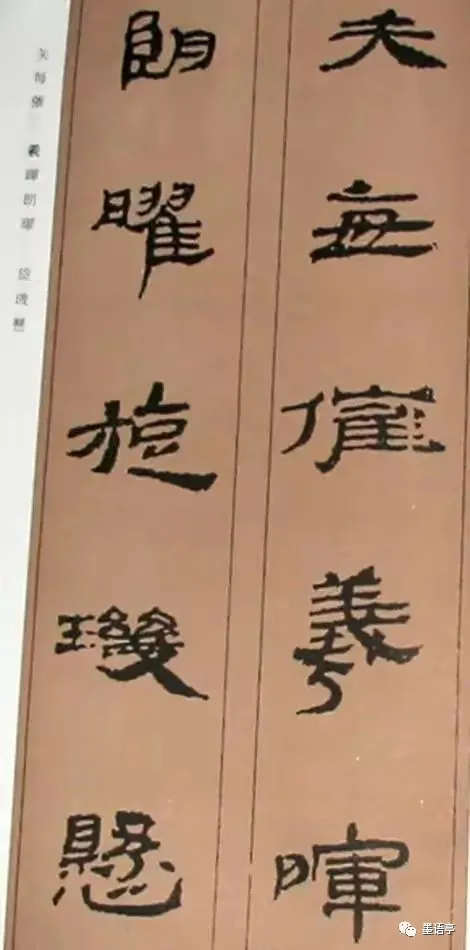 矢每催羲暉
朗曜旋璣懸
矢每催 羲暉朗曜 旋璣懸
墨语亭